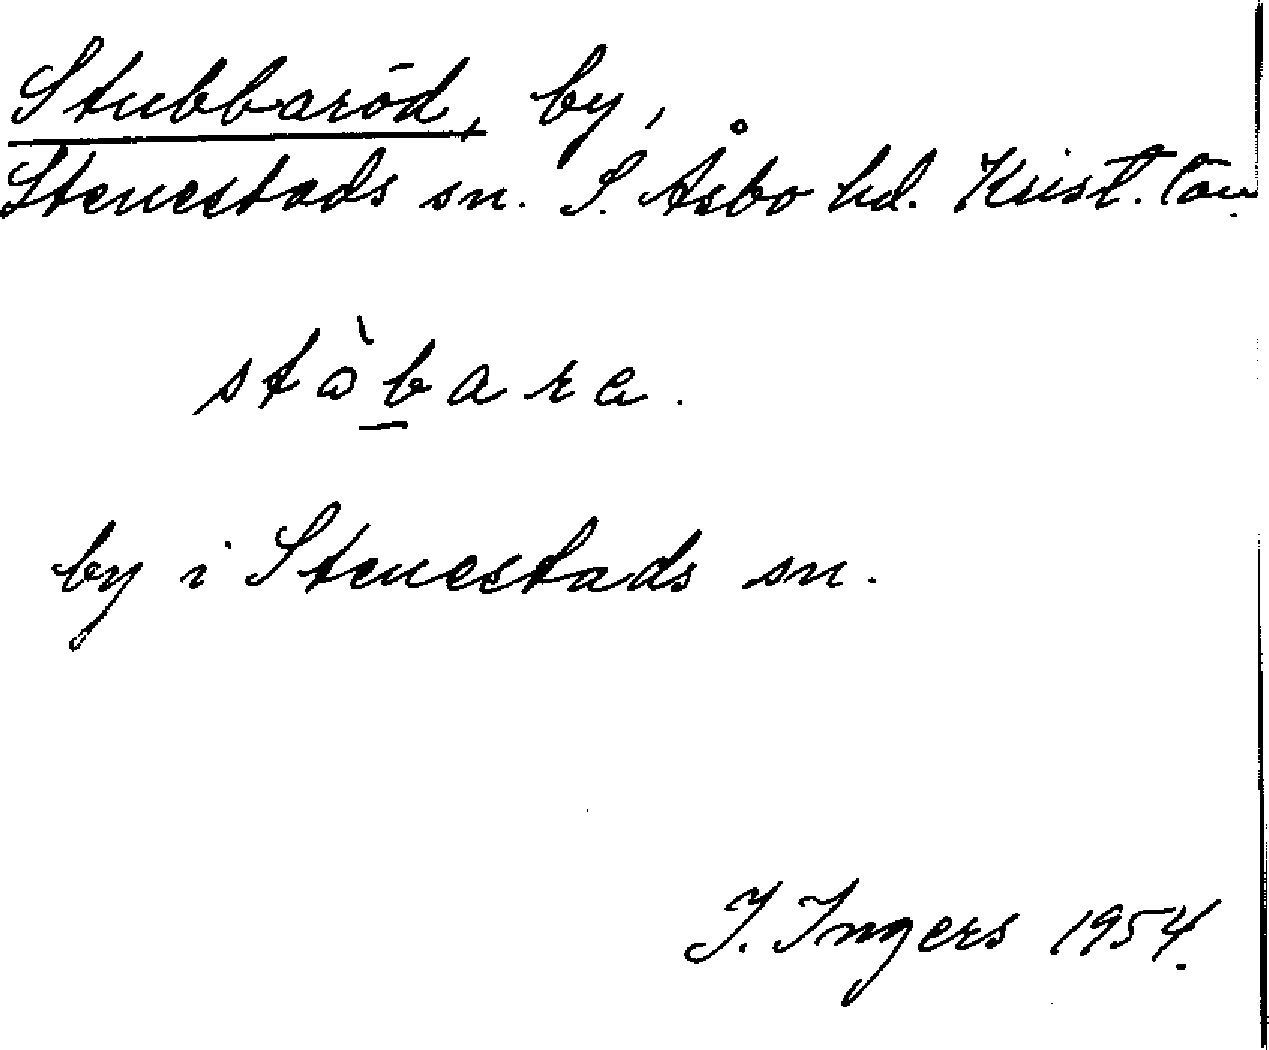 Stubbaröd, by,
Stenestads sn. S. Åsbo hd. Krist. län.
stòbara.
by i Stenestads sn.
I. Ingers 1954.